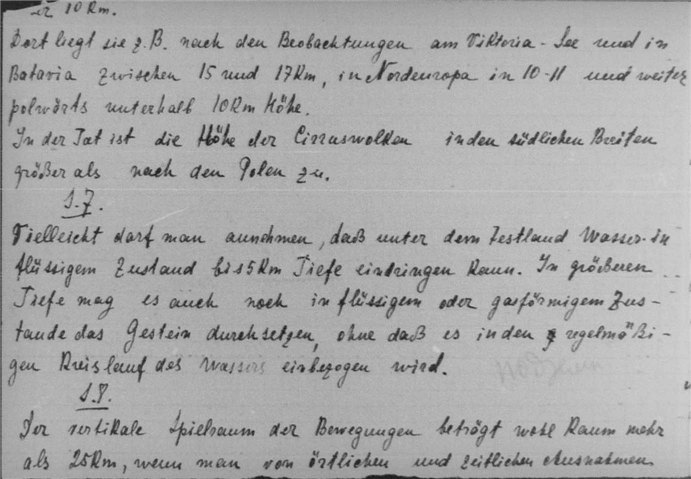 er 10 Km.
Dort liegt sie z.B. nach den Beobachtungen am Viktoria-See und in
Batavia zwischen 15 und 17 Km, in Nordeuropa in 10-11 und weiter
polwärts unterhalb 10 Km Höhe.
In der Tat ist die Höhe der Cirruswolken in den südlichen Breiten
größer als nach den Polen zu.
S.7.
Vielleicht darf man annehmen, daß unter dem Festland Wasser in
flüssigem Zustand bis 5 Km Tiefe eindringen kann. In größeren
Tiefe mag es auch noch in flüssigem oder gasförmigem Zus-
tande das Gestein durchsetzen, ohne daß es in den regelmäßi-
gen Kreislauf des Wassers einbezogen wird.
S.8.
Der vertikale Spielraum der Bewegungen beträgt wohl kaum mehr
als 25 Km, wenn man von örtlichen und zeitlichen Ausnahmen